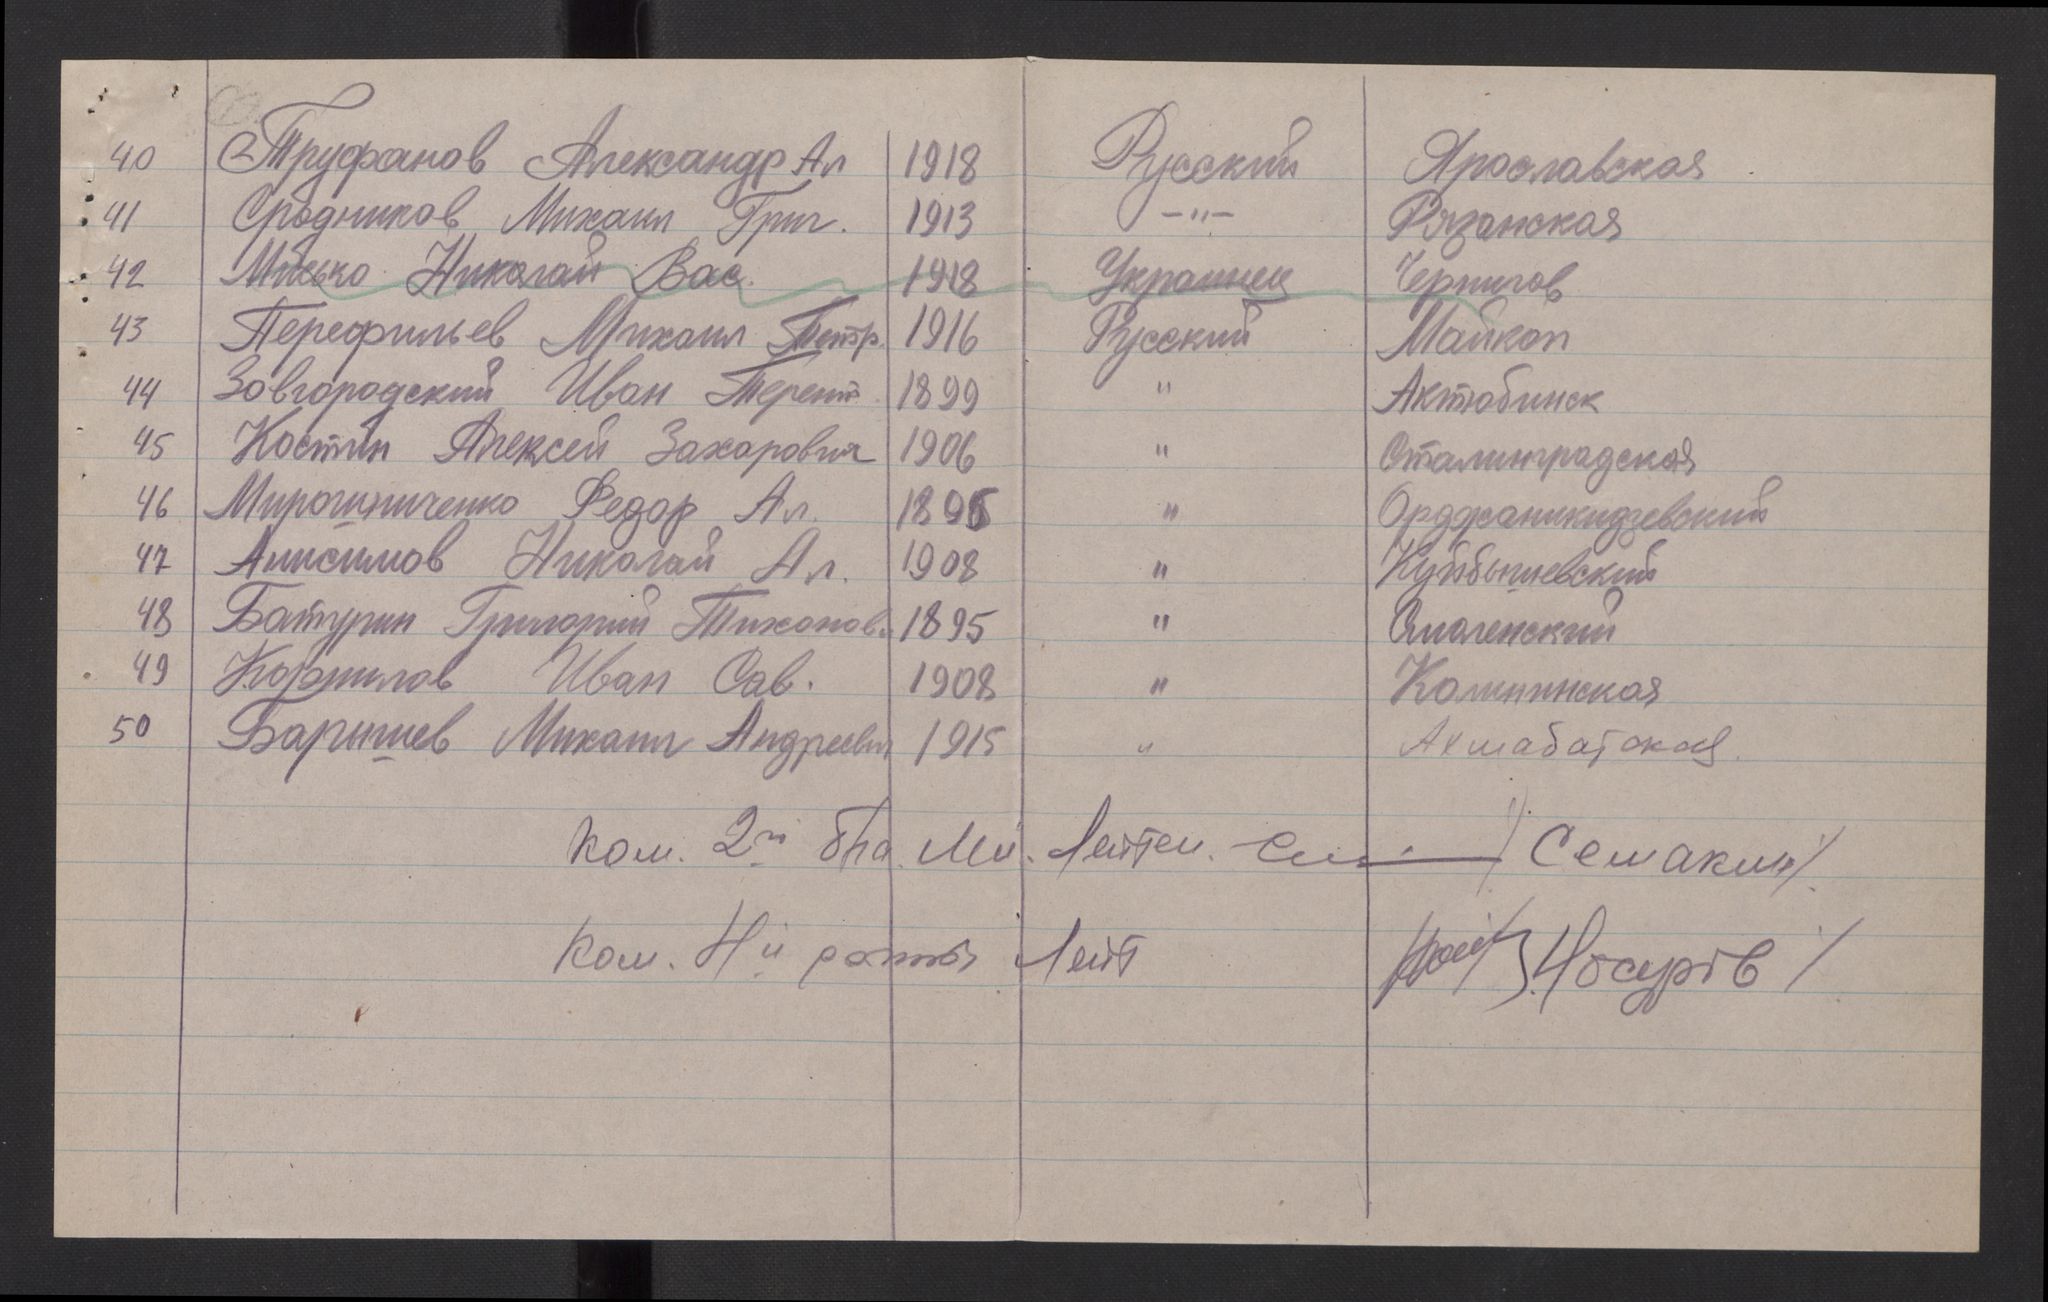 40 Труфанов Александр Ал 1918 Русский Ярославская
41 Сродников Михаил Григ. 1913 -"- Рязанская
42 Мисько Николай Вас. 1918 Украинец Чернигов
43 Перефильев Михаил Петр. 1916 Русский Майкоп
44 Завгородский Иван Терент. 1899 " Актюбинск
45 Костин Алексей Захарович 1906 " Сталинградская
46 Мирошниченко Федор Ал. 1895 " Орджаникидзевский
47 Анисимов Николай Ал. 1908 " Куйбышевский
48 Батурин Григорий Тихонов. 1895 " Смоленский
49 Корнилов Иван Сав. 1908 " Калининская
50 Барышев Михаил Андреевич 1915 " Ахшабатская.
Ком. 2й б-на. Мл. Лейтен. /Семакин/
Ком. 4й роты Лейт